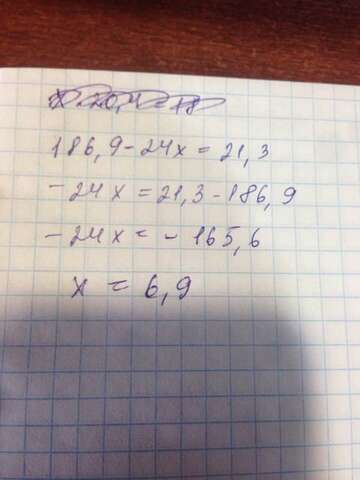 186,9-24x=21,3
-24x=21,3-186,9
-24x=-165,6
x=6,9